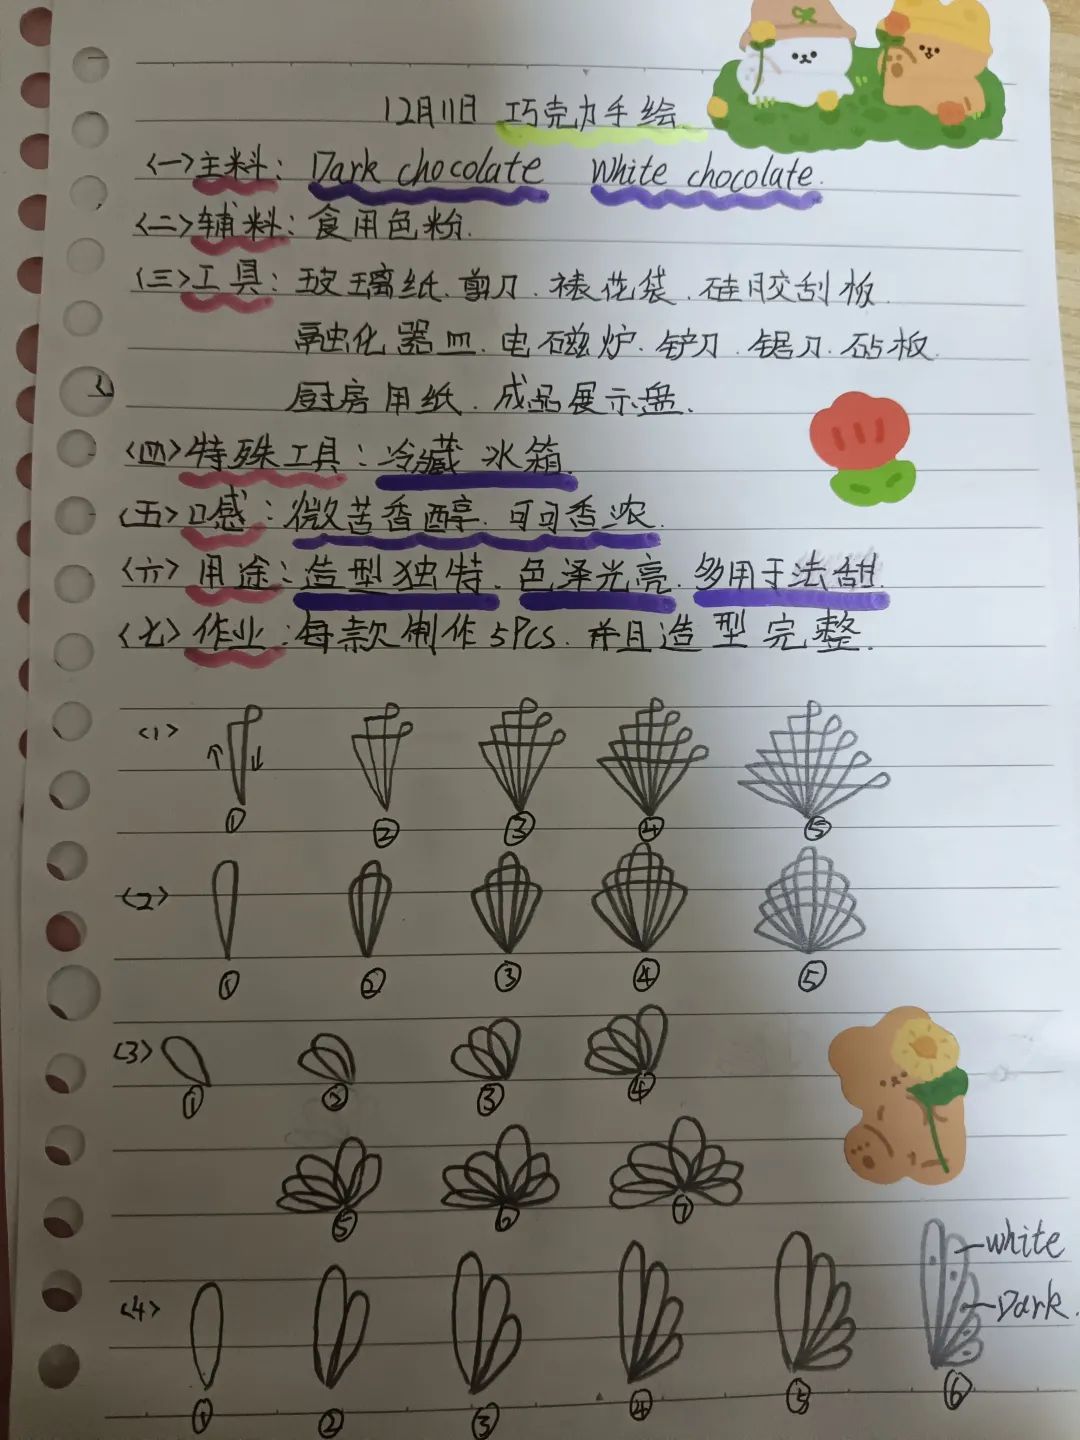 12月11日 巧克力手绘
<一>主料: Dark chocolate White chocolate.
<二>辅料: 食用色粉.
<三>工具: 玻璃纸.剪刀.裱花袋.硅胶刮板
融化器皿.电磁炉.铲刀.锯刀.砧板.
厨房用纸.成品展示盘.
<四>特殊工具: 冷藏冰箱.
<五>口感: 微苦香醇.可可香浓.
<六>用途: 造型独特.色泽光亮.多用于法甜.
<七>作业: 每款制作5Pcs.并且造型完整.
<1>
↑ ↓
① ② ③ ④ ⑤
<2>
① ② ③ ④ ⑤
<3>
① ② ③ ④
⑤ ⑥ ⑦
white
<4> Dark.
① ② ③ ④ ⑤ ⑥